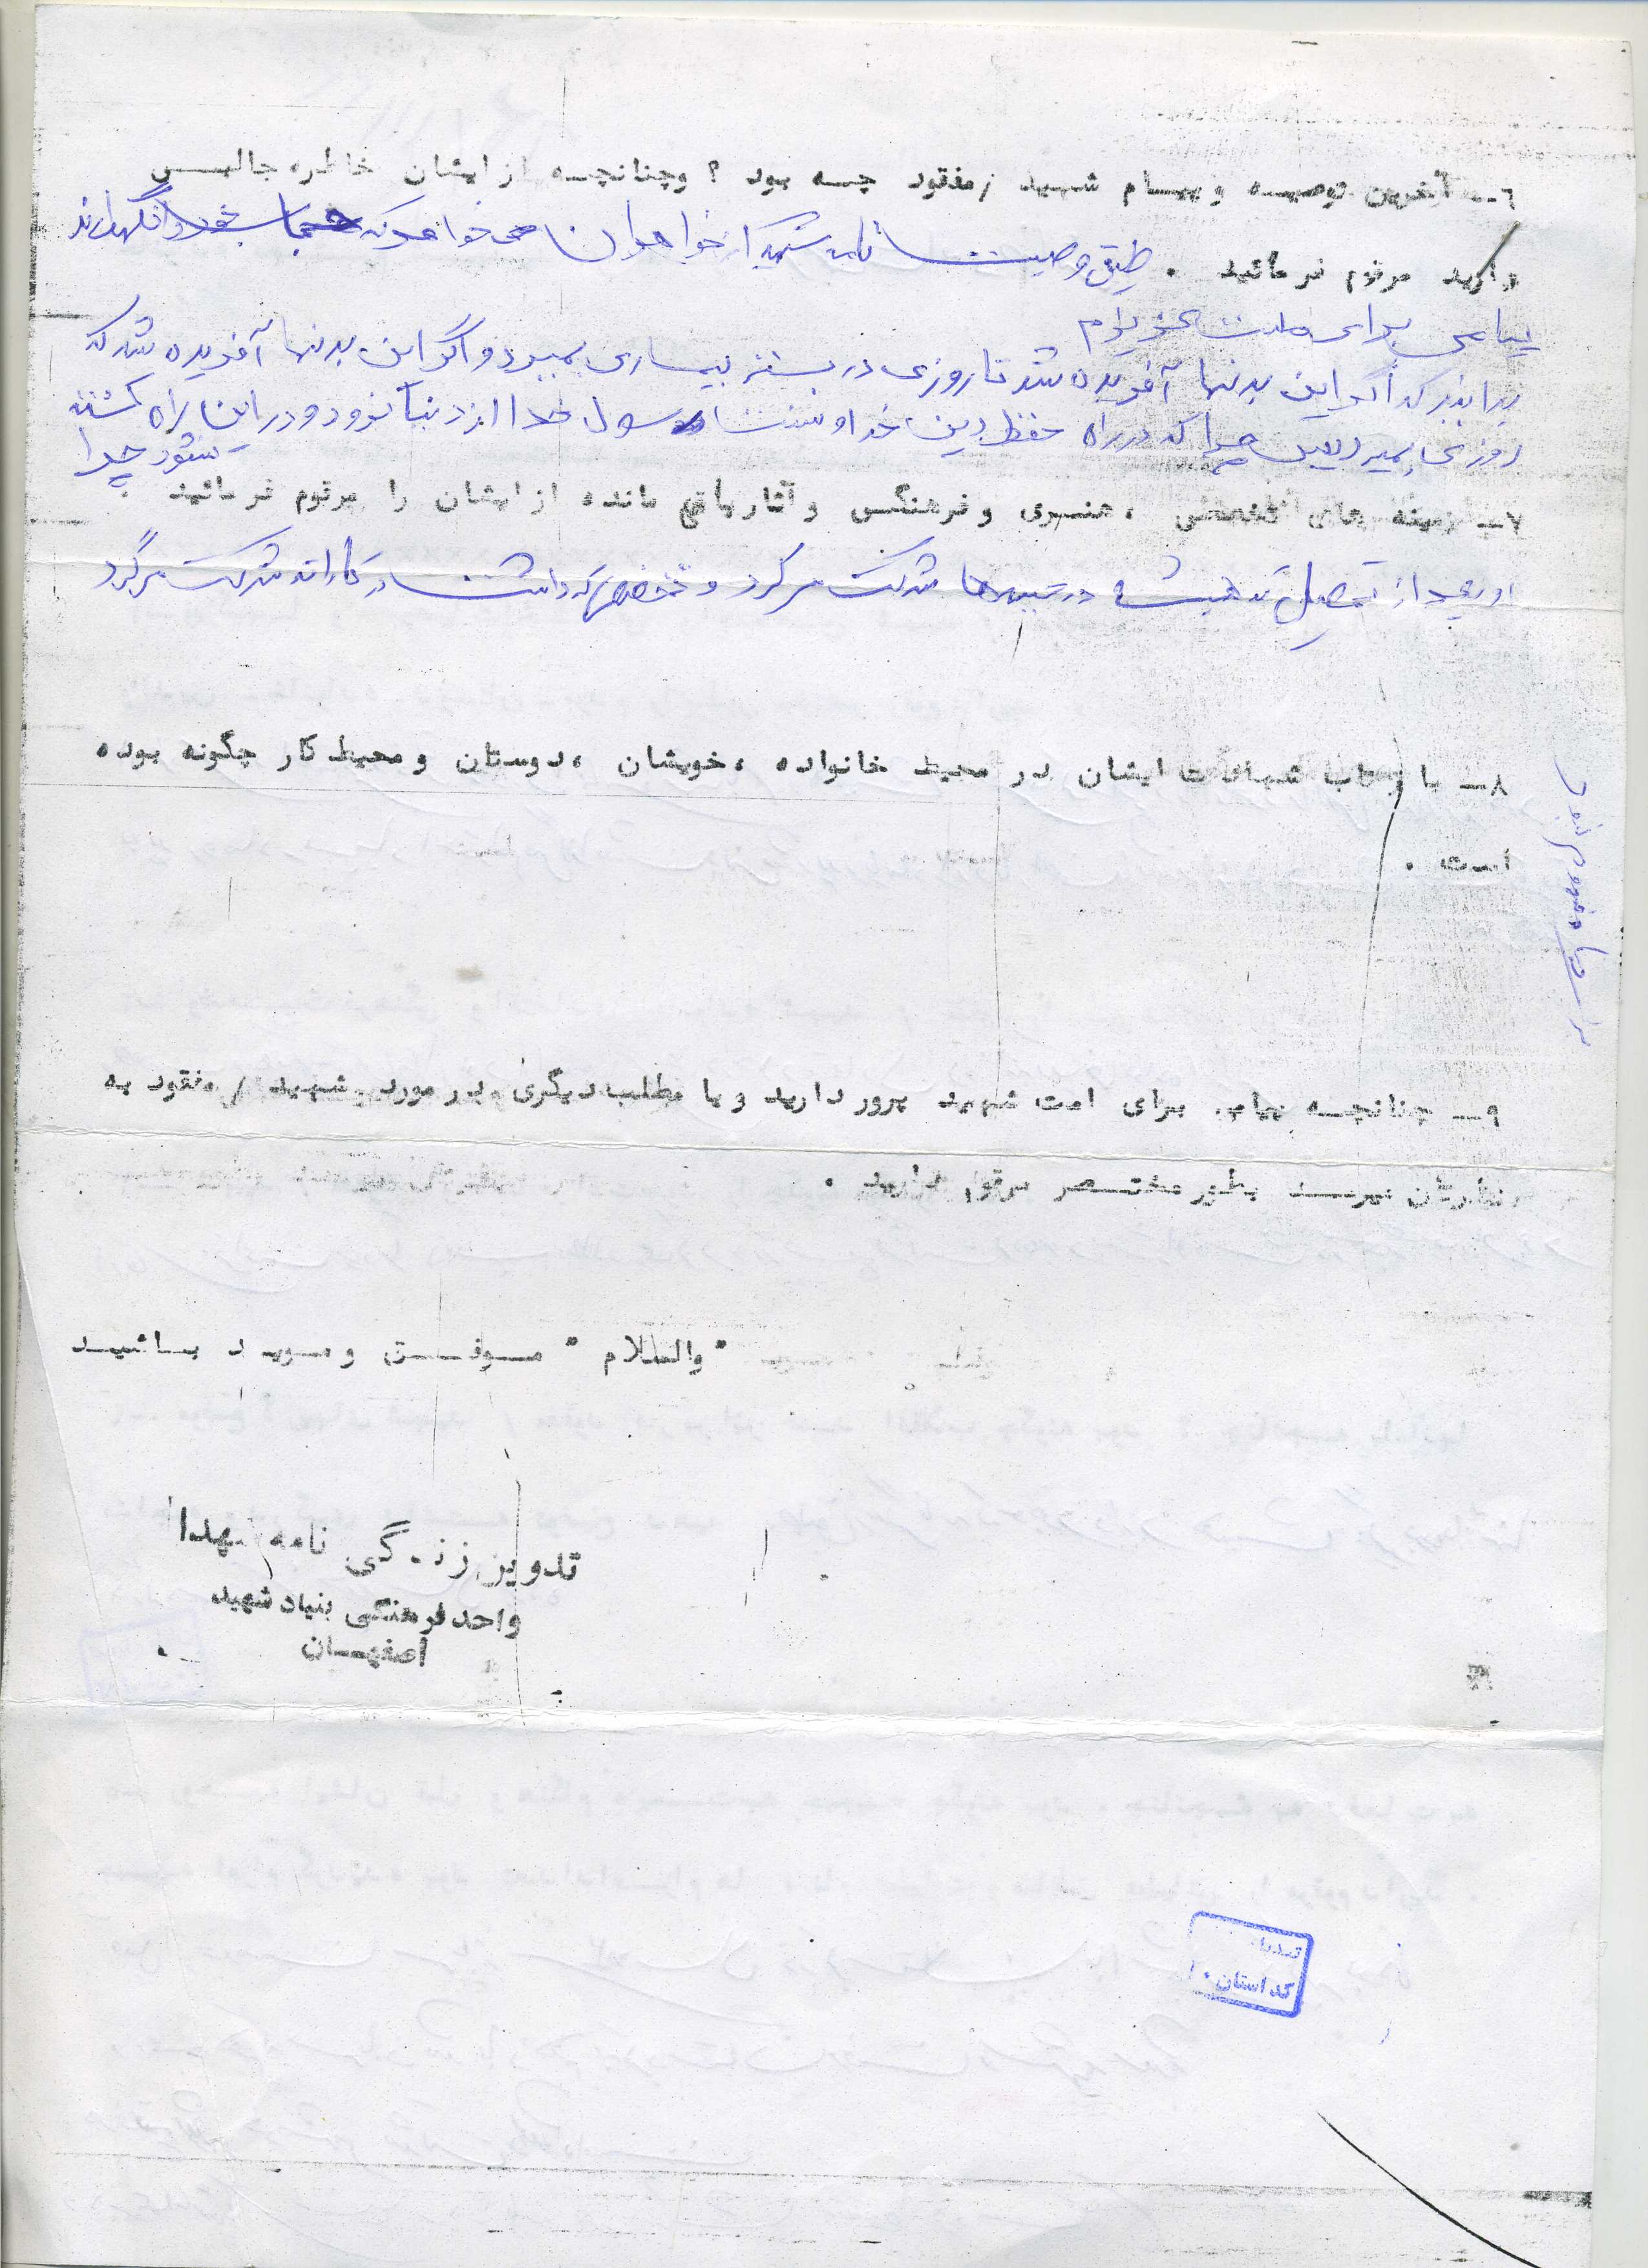 ٦ــ آخرین توصیه و پیام شهید /مفقود چه بود ؟ وچنانچه از ایشان خاطره جالبی
دارید مرقوم فرمائید . طبق وصیت نامه شهید از خواهران می خواهد که حجاب خود را نگهدارند
پیامی برای ملت عزیزم
بدانید که اگر این بدنها آفریده شد تا روزی در بستر بیماری بمیرد و اگر این بدنها آفریده شد که
روزی بمیرد پس چرا که در راه حفظ دین خدا و سنت رسول خدا از دنیا نرود و در این راه کشته
نشود چرا
٧ــ زمینه های تخصصی ، هنری و فرهنگی و آثار باقی مانده از ایشان را مرقوم فرمائید .
او بعد از تحصیل همیشه در شرکت میکرد و داشت در کاراته شرکت میکرد
٨ــ بازتاب شهادت ایشان در محیط خانواده ، خویشان ، دوستان و محیط کار چگونه بوده
است .
٩ــ چنانچه پیامی برای امت شهید پرور دارید و یا مطلب دیگری در مورد شهید / مفقود به
نظرتان میرسد بطور مختصر مرقوم دارید .
" والسلام " موفق و موید باشید
تدوین زندگی نامه شهدا
واحد فرهنگی بنیاد شهید
اصفهان
کد استان